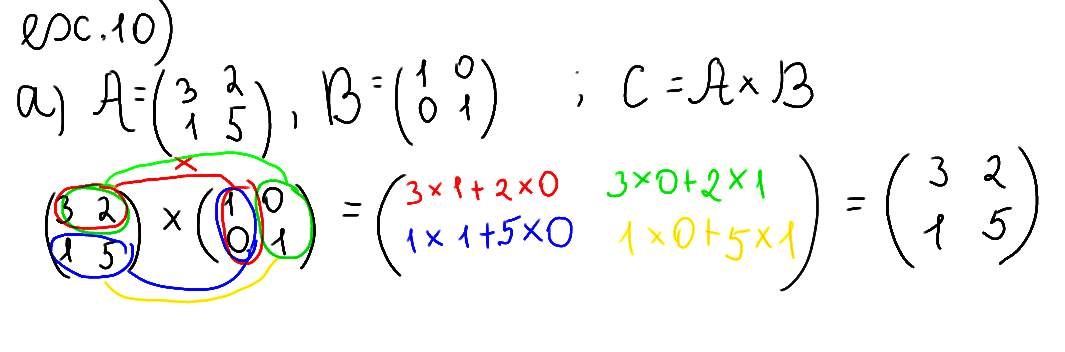 exc.10)
a) A=(3 2 1 5), B=(1 0 0 1) ; C=A×B
×
(3 2 1 5) × (1 0 0 1) = (3×1+2×0 3×0+2×1 1×1+5×0 1×0+5×1) = (3 2 1 5)